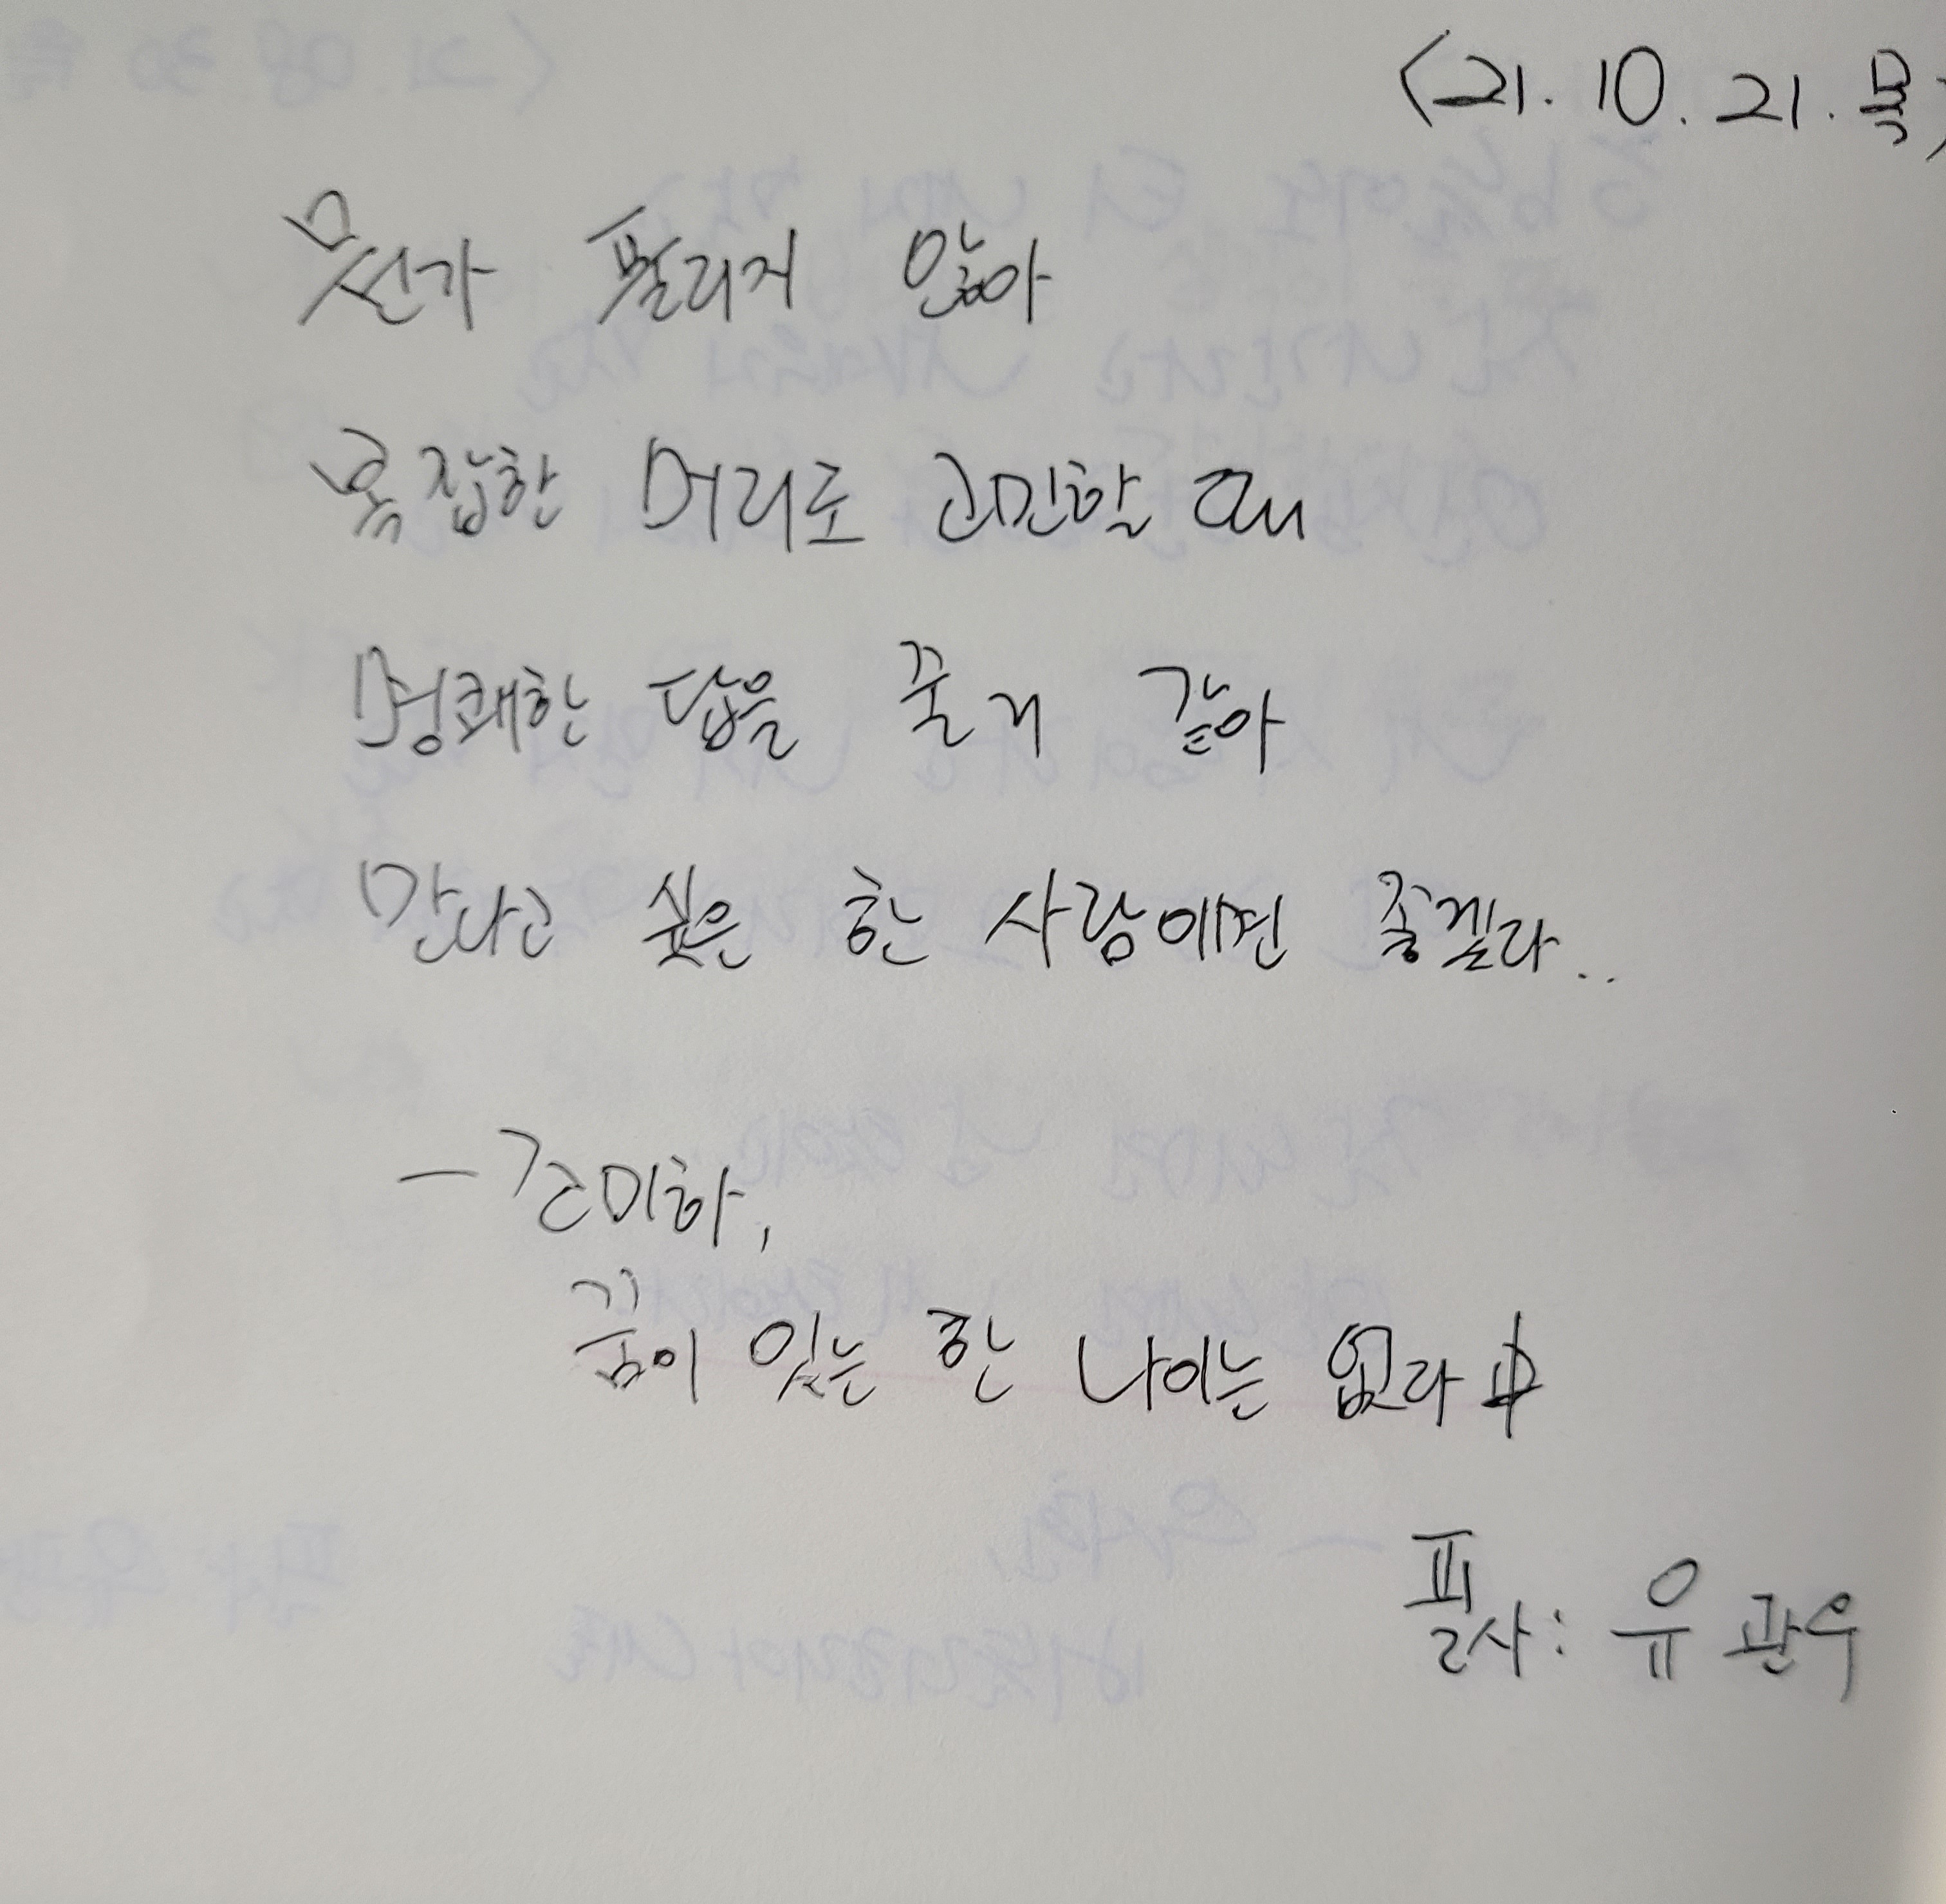 <21.10.21.목>
무언가 풀리지 않아
복잡한 머리로 고민할 때
명쾌한 답을 줄 거 같아
만나고 싶은 한 사람이면 좋겠다..
- 조미하,
꿈이 있는 한 나이는 없다 中
필사: 유관우